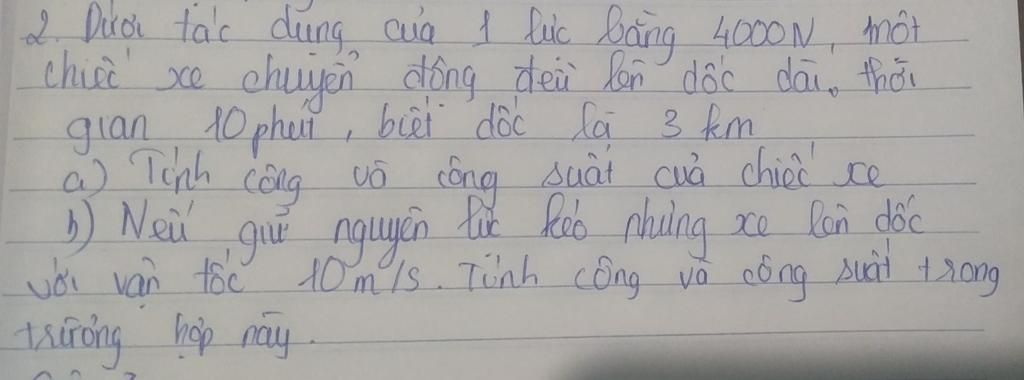 2. Dưới tác dụng của 1 lực bằng 4000N, một
chiếc xe chuyển động đều lên dốc dài. thời
gian 10 phút, biết dốc là 3 km
a) Tính công và công suất của chiếc xe
b) Nếu giữ nguyên lực kéo nhưng xe lên dốc
với vận tốc 10m/s. Tính công và công suất trong
trường hợp này.